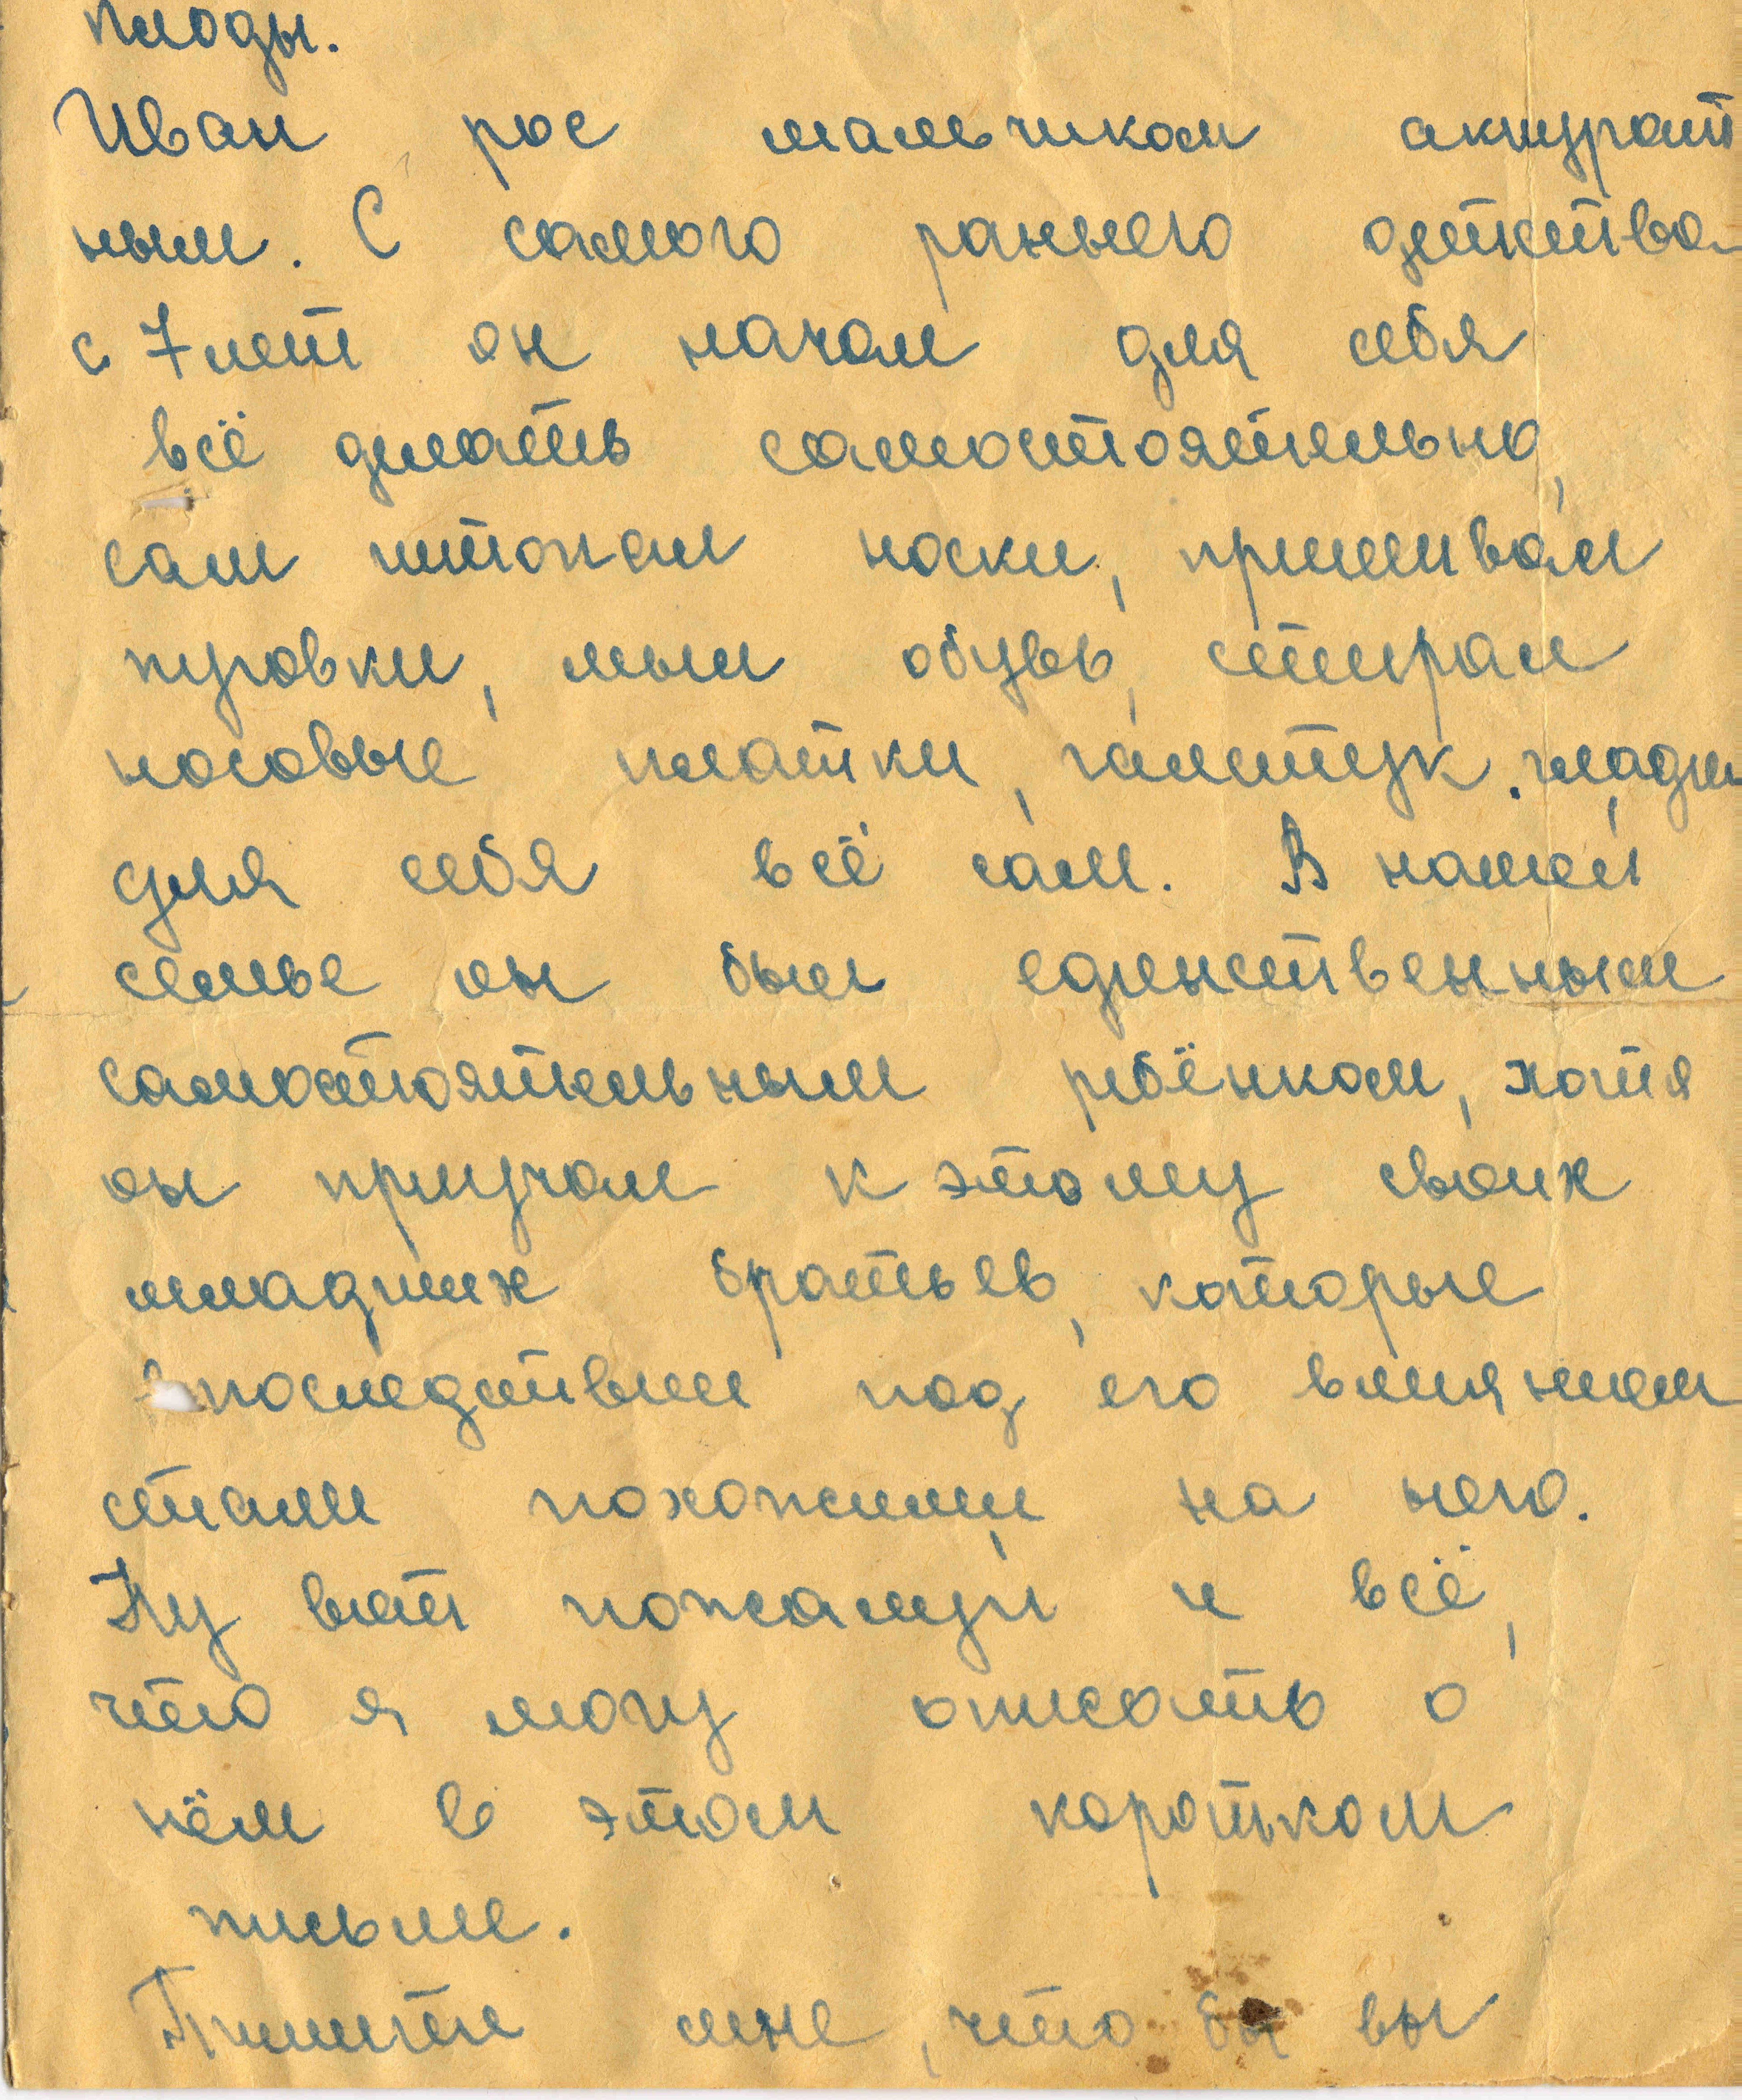 плоды.
Иван рос мальчиком аккурат
ным. С самого раннего детства
с 7 лет он начал для себя
всё делать самостоятельно,
сам штопал носки, пришивал
пуговки, мыл обувь, стирал
носовые платки, галстук, гладил
для себя всё сам. В нашей
семье он был единственным
самостоятельным ребёнком, хотя
он приучал к этому своих
младших братьев, которые
впоследствии под его влиянием
стали похожими на него.
Ну вот пожалуй и всё,
что я могу описать о
нём в этом коротком
письме.
Пишите мне, что бы вы